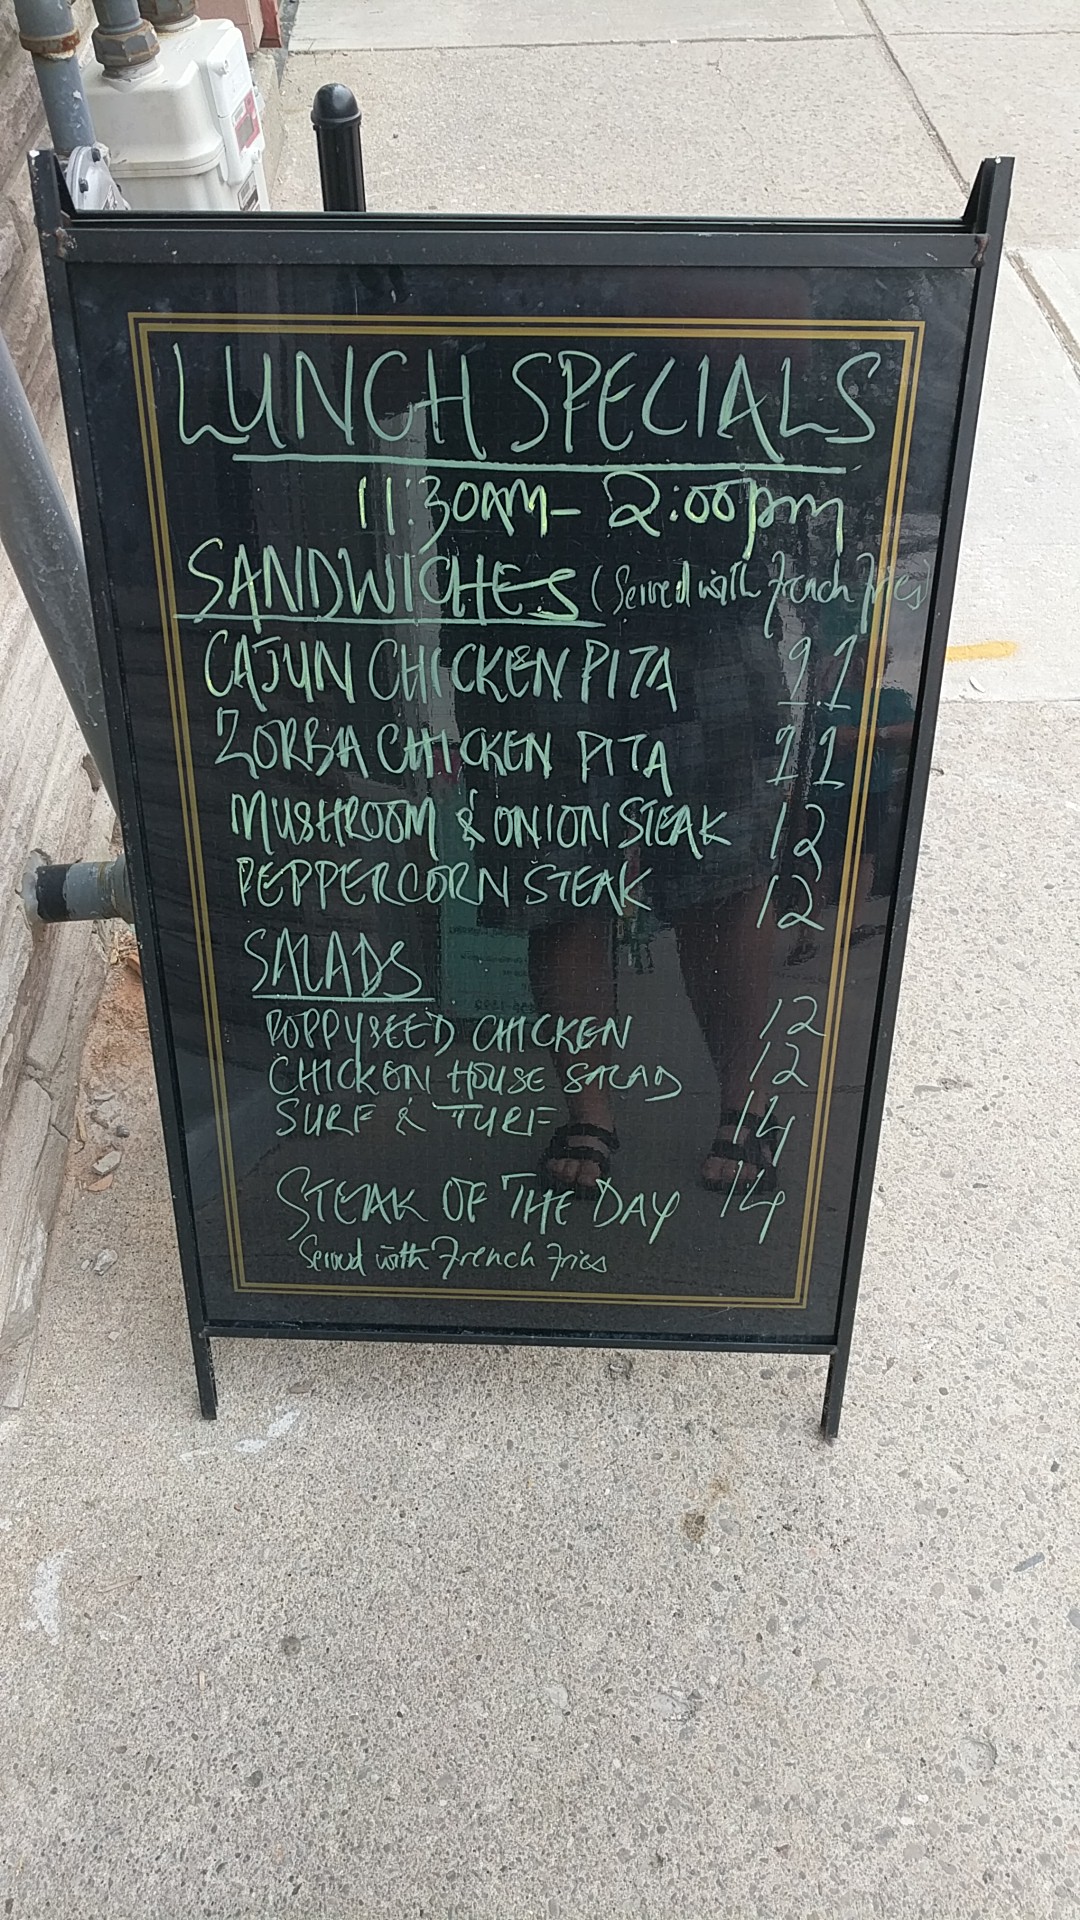 LUNCH SPECIALS
11:30AM - 2:00pm
SANDWICHES (Served with French Fries)
CAJUN CHICKEN PITA 11
ZORBA CHICKEN PITA 11
MUSHROOM & ONION STEAK 12
PEPPERCORN STEAK 12
SALADS
POPPYSEED CHICKEN 12
CHICKEN HOUSE SALAD 12
SURF & TURF 14
STEAK OF THE DAY 14
Served with French Fries